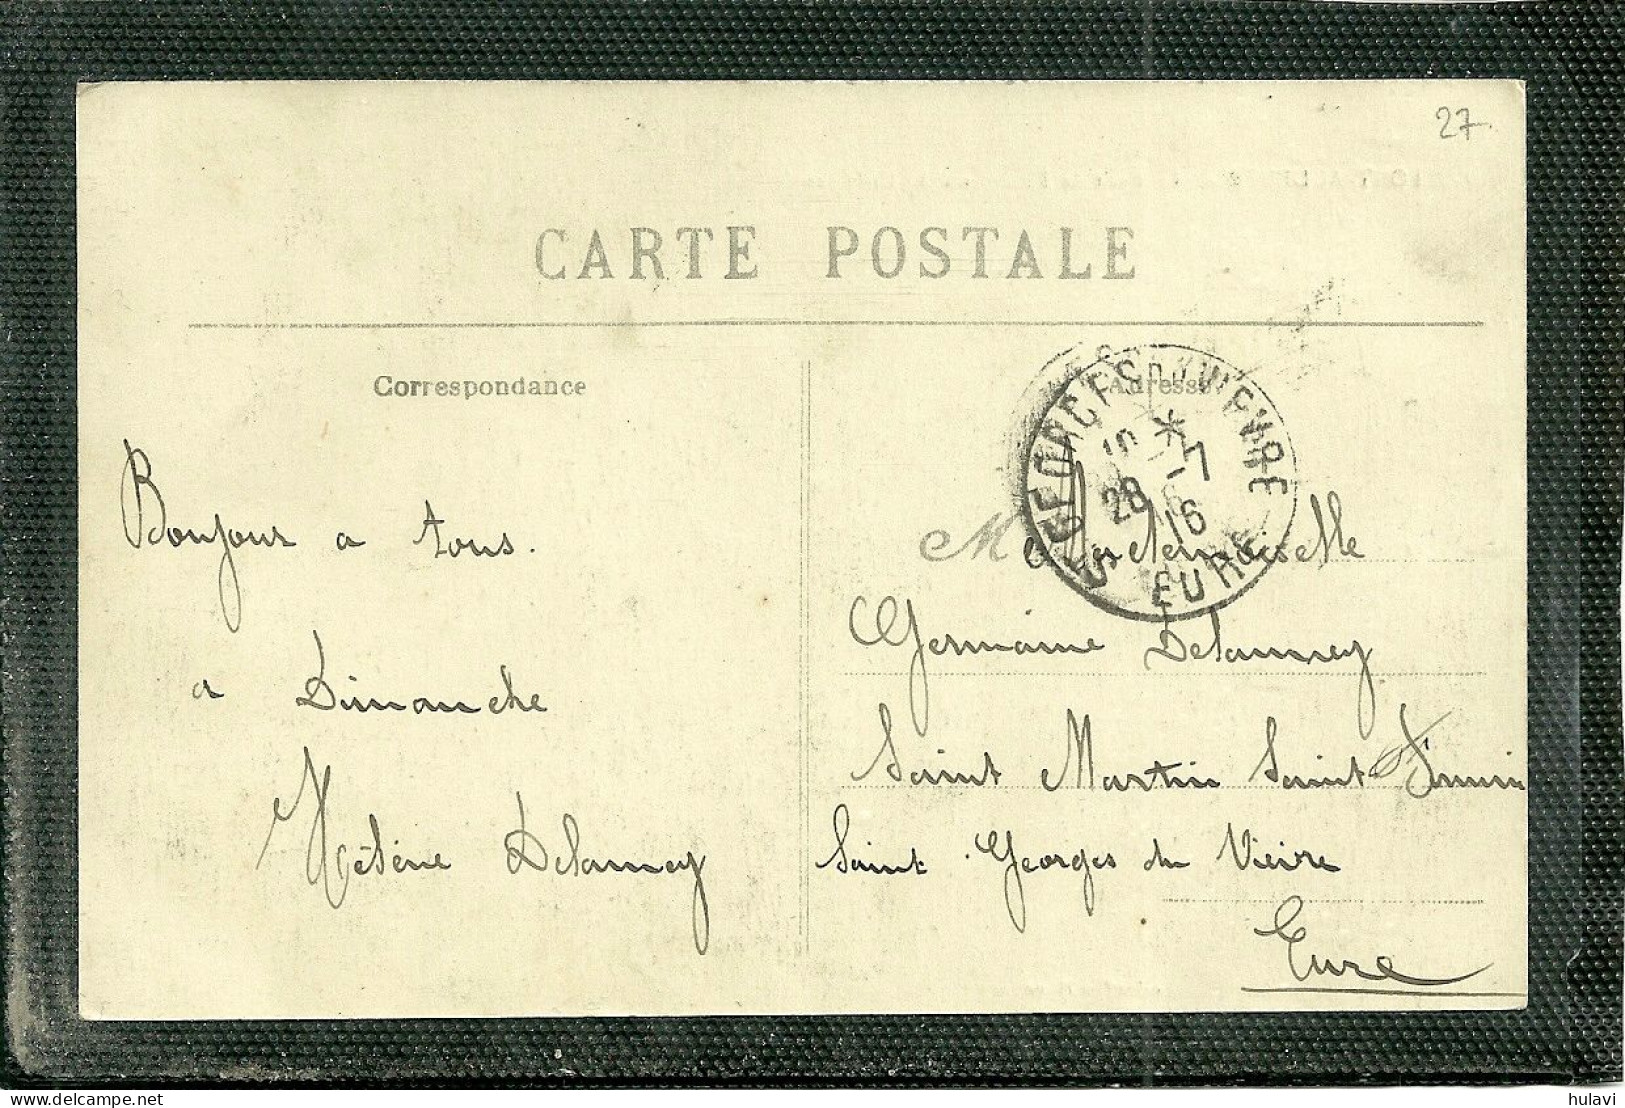 27
CARTE POSTALE
Correspondance
Adresse
ST GEORGES DU VIEVRE
10 *
28 -7
16
EURE
Bonjour a tous.
a Dimanche
Hélène Delamey
Mademoiselle
Germaine Delamey
Saint Martin Saint Firmin
Saint Georges du Vievre
Eure
hulavi